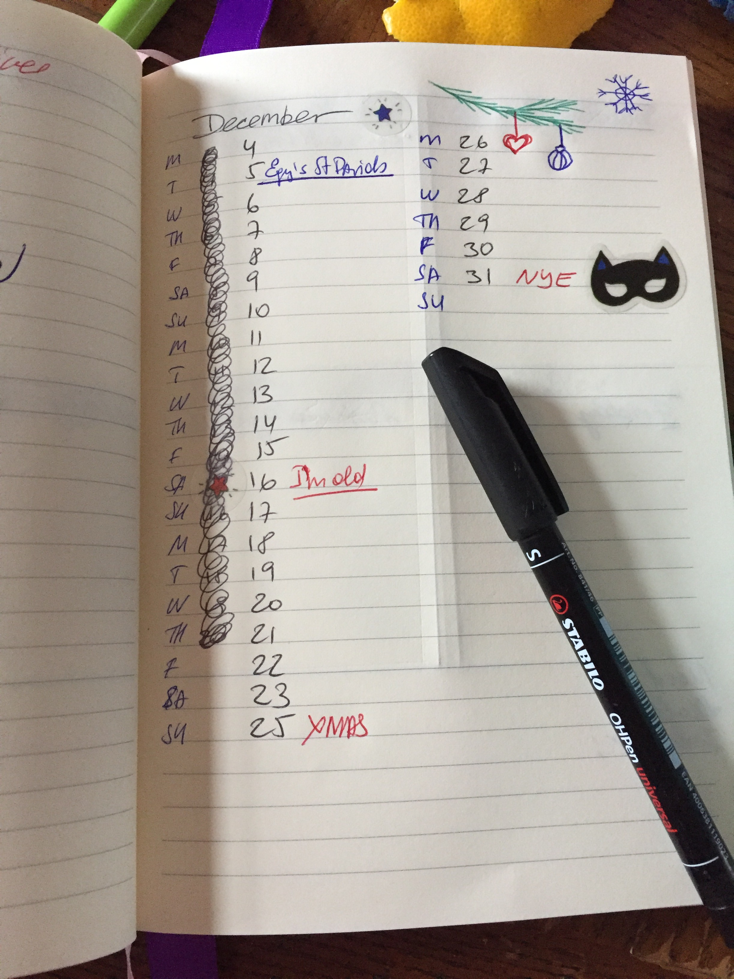 December
M 4
T 5 Epy's St Davids
W 6
TH 7
F 8
SA 9
SU 10
M 11
T 12
W 13
TH 14
F 15
SA 16 I'm old
SU 17
M 18
T 19
W 20
TH 21
F 22
SA 23
SU 25 XMAS
M 26
T 27
W 28
TH 29
F 30
SA 31 NYE
SU
S
STABILO
OHPen universal